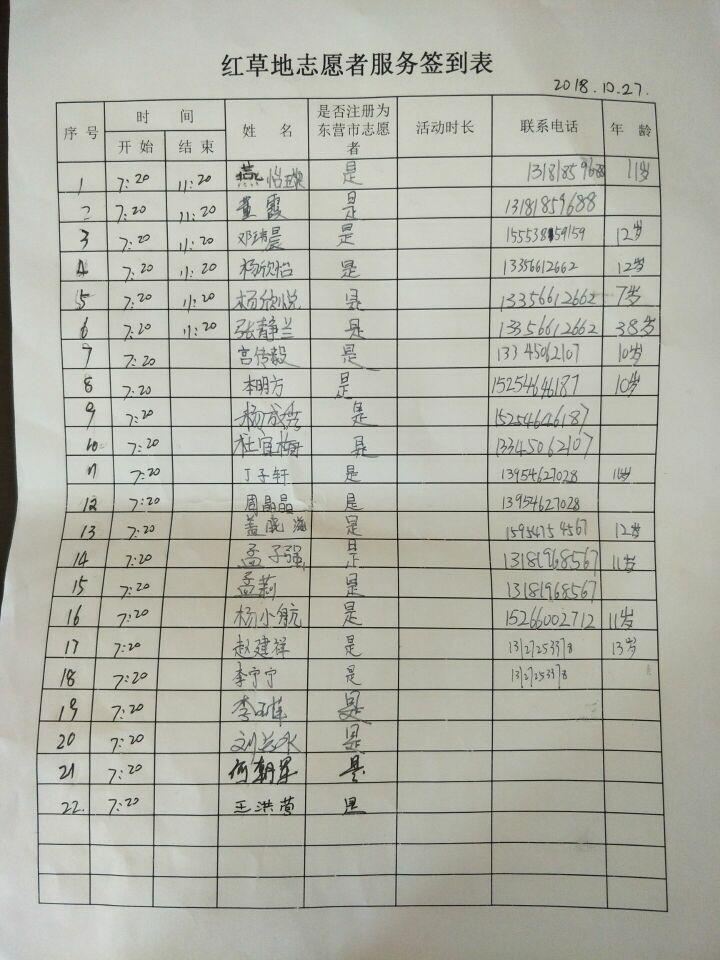 红草地志愿者服务签到表
2018.10.27.
序号 时间 开始 结束 姓名 是否注册为东营市志愿者 活动时长 联系电话 年龄
1 7:20 11:20 燕怡璇 是 13181859688 11岁
2 7:20 11:20 董霞 是 13181859688
3 7:20 11:20 邓晨 是 12岁
4 7:20 11:20 杨欣怡 是 13356612662 12岁
5 7:20 11:20 杨欣悦 是 13356612662 7岁
6 7:20 11:20 张静兰 是 13356612662 38岁
7 7:20 宫传毅 是 13345062107 10岁
8 7:20 李明方 是 15254646187 10岁
9 7:20 杨成秀 是 15254646187
10 7:20 杜宜梅 是 13345062107
11 7:20 丁子轩 是 13954627028
12 7:20 周晶晶 是 13954627028
13 7:20 盖晓海 是 15954754567 12岁
14 7:20 孟子强 是 13181968567 11岁
15 7:20 孟莉 是 13181968567
16 7:20 杨小航 是 15266002712 11岁
17 7:20 赵建祥 是 13岁
18 7:20 李宁宁 是
19 7:20 李 是
20 7:20 刘兰水 是
21 7:20 何朝军 是
22. 7:20 王洪莺 是